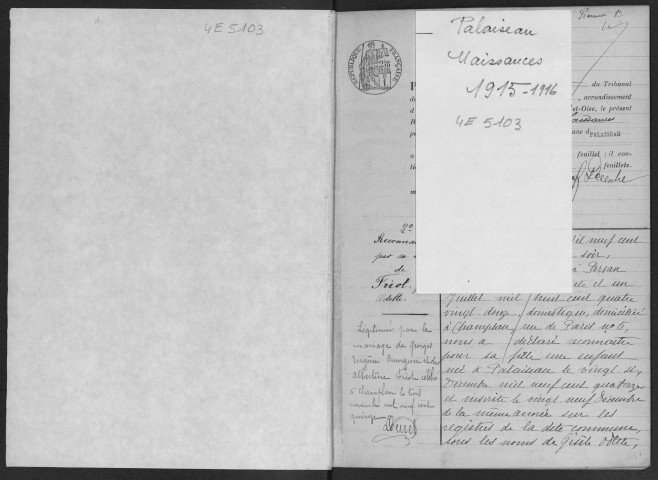 4E 5103
RÉPUBLIQUE FRANÇAISE
Palaiseau
Naissances
1915-1916
4E 5103
Premier
du Tribunal
, arrondissement
et-Oise, le présent
Naissances
PALAISEAU
feuillet ; il con-
feuillets.
Décembre
No
Reconnai
par sa
de
Friot,
Odette.
Légitimée par le
mariage de Georges
Eugène Bourgoin et de
Albertine Friot célébré
à Champlan le trois
novembre mil neuf cent
quinze.
mil neuf cent
soir,
à Persan
te et un
Juillet mil huit cent quatre
vingt douze domestique, domiciliée
à Champlan, rue de Paris no 6,
nous a déclaré reconnaître
pour sa fille une enfant
née à Palaiseau le vingt six
Décembre mil neuf cent quatorze
et inscrite le vingt neuf Décembre
de la même année sur les
registres de la dite commune,
sous les noms de Gisèle Odette,